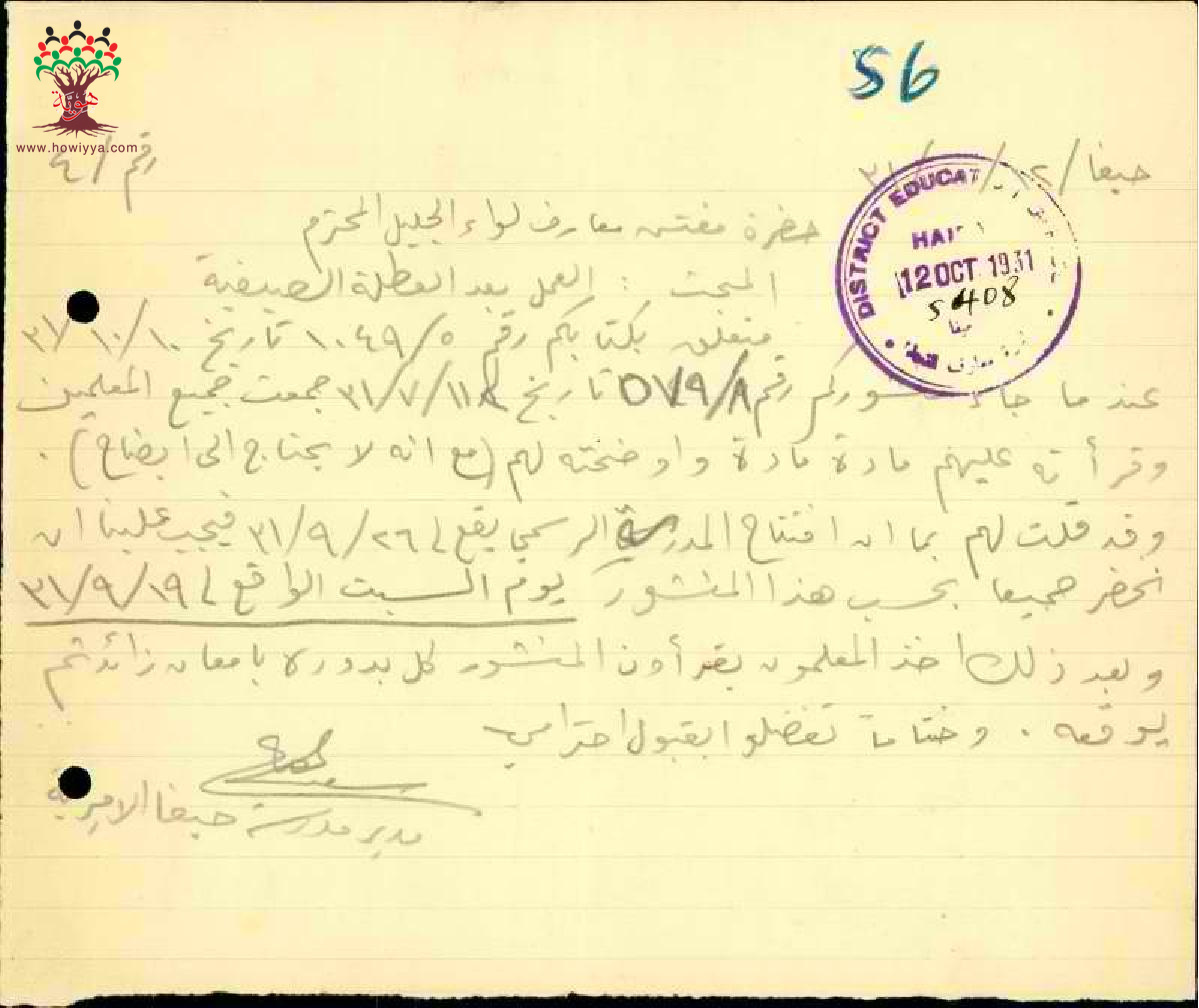 56
هوية
www.howiyya.com
رقم / ٤
حيفا / ١٢ / / ٣١
DISTRICT EDUCAT
HAI
12 OCT 1931
5408
حضرة مفتش معارف لواء الجليل المحترم
المبحث : العمل بعد العطلة الصيفية
متعلق بكتابكم رقم ١٠٤٩/٥ تاريخ ٣١/١٠/١٠
عند ما جاء رقم تاريخ جمعت جميع المعلمين
وقرأته عليهم مادة مادة واوضحته لهم (مع انه لا يحتاج الى ايضاح) .
وقد قلت لهم بما ان افتتاح المدرسة الرسمي يقع في ٣١/٩/٢٦ فيجب علينا ان
نحضر جميعا بحسب هذا المنشور يوم السبت الواقع في ٣١/٩/١٩
وبعد ذلك اخذ المعلمون يقرأون المنشور كل بدوره بامعان زائد ثم
يوقعه . وختاما تفضلوا بقبول احترامي
مدير مدرسة حيفا الاميرية